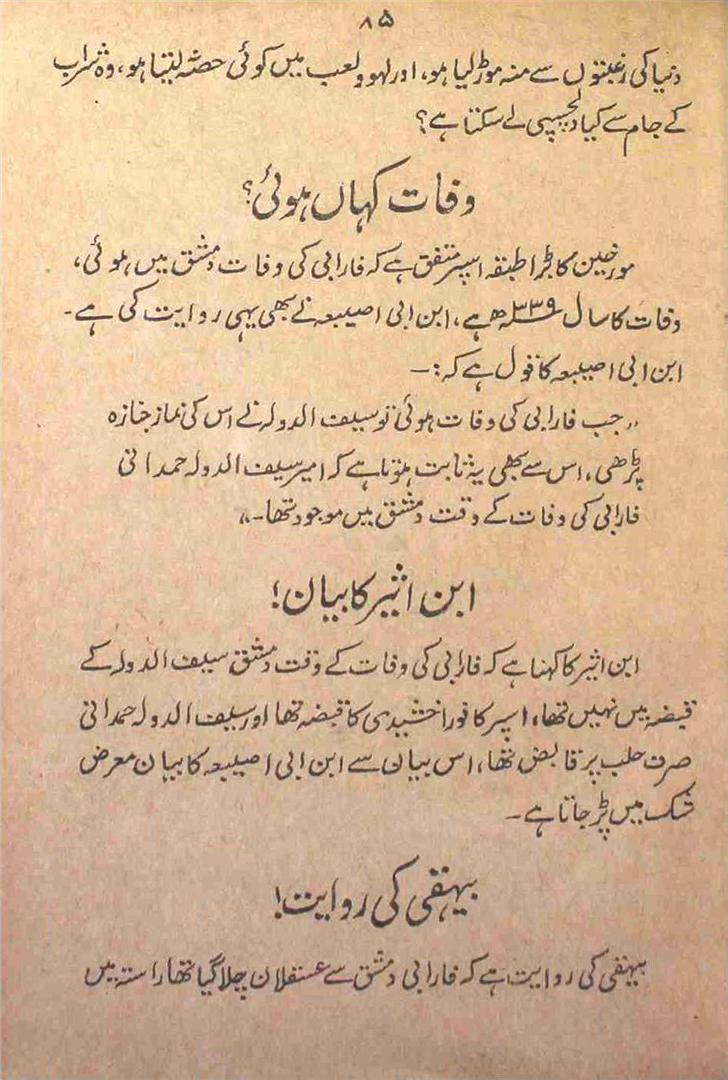 ۸۵
دنیا کی رغبتوں سے منہ موڑ لیا ہو، اور لہو ولعب میں کوئی حصّہ لیتا ہو، وہ شراب
کے جام سے کیا دلچسپی لے سکتا ہے؟
وفات کہاں ہوئی؟
مورخین کا بڑا طبقہ اسپر متفق ہے کہ فارابی کی وفات دمشق میں ہوئی،
وفات کا سال ۳۳۹ھ ہے، ابن ابی اصیبعہ نے بھی یہی روایت کی ہے۔
ابن ابی اصیبعہ کا قول ہے کہ:۔
"جب فارابی کی وفات ہوئی تو سیف الدولہ نے اس کی نماز جنازہ
پڑھی، اس سے بھی یہ ثابت ہوتا ہے کہ امیر سیف الدولہ حمدانی
فارابی کی وفات کے وقت دمشق میں موجود تھا۔"
ابن اثیر کا بیان!
ابن اثیر کا کہنا ہے کہ فارابی کی وفات کے وقت دمشق سیف الدولہ کے
قبضہ میں نہیں تھا، اسپر کافور اخشیدی کا قبضہ تھا اور سیف الدولہ حمدانی
صرف حلب پر قابض تھا، اس بیان سے ابن ابی اصیبعہ کا بیان معرض
شک میں پڑ جاتا ہے۔
بیہقی کی روایت!
بیہقی کی روایت ہے کہ فارابی دمشق سے عسقلان چلا گیا تھا راستہ میں